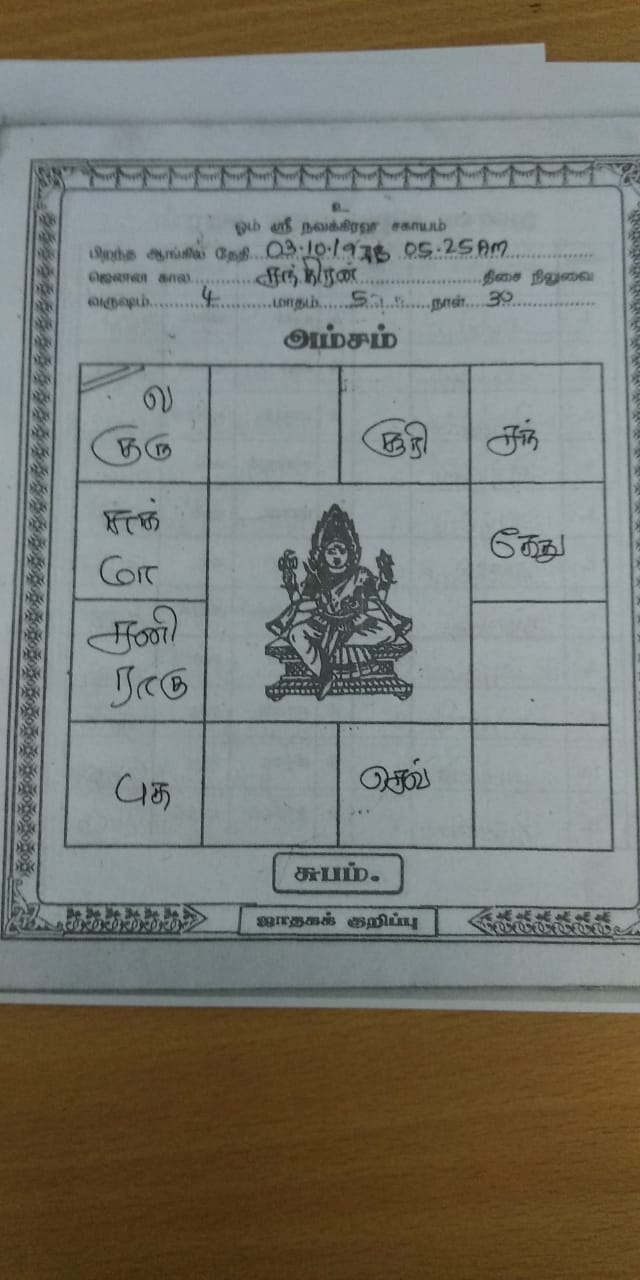 உ
ஓம் ஸ்ரீ நவக்கிரஹ சகாயம்
பிறந்த ஆங்கில தேதி 03.10.1978 05.25 AM
ஜெனன கால சந்திரன் திசை நிலுவை
வருஷம் 4 மாதம் 5 நாள் 30
அம்சம்
ல
குரு
சூரி
சந்
சுக்
மா
கேது
சனி
ராகு
புத
செவ்
சுபம்.
ஜாதகக் குறிப்பு